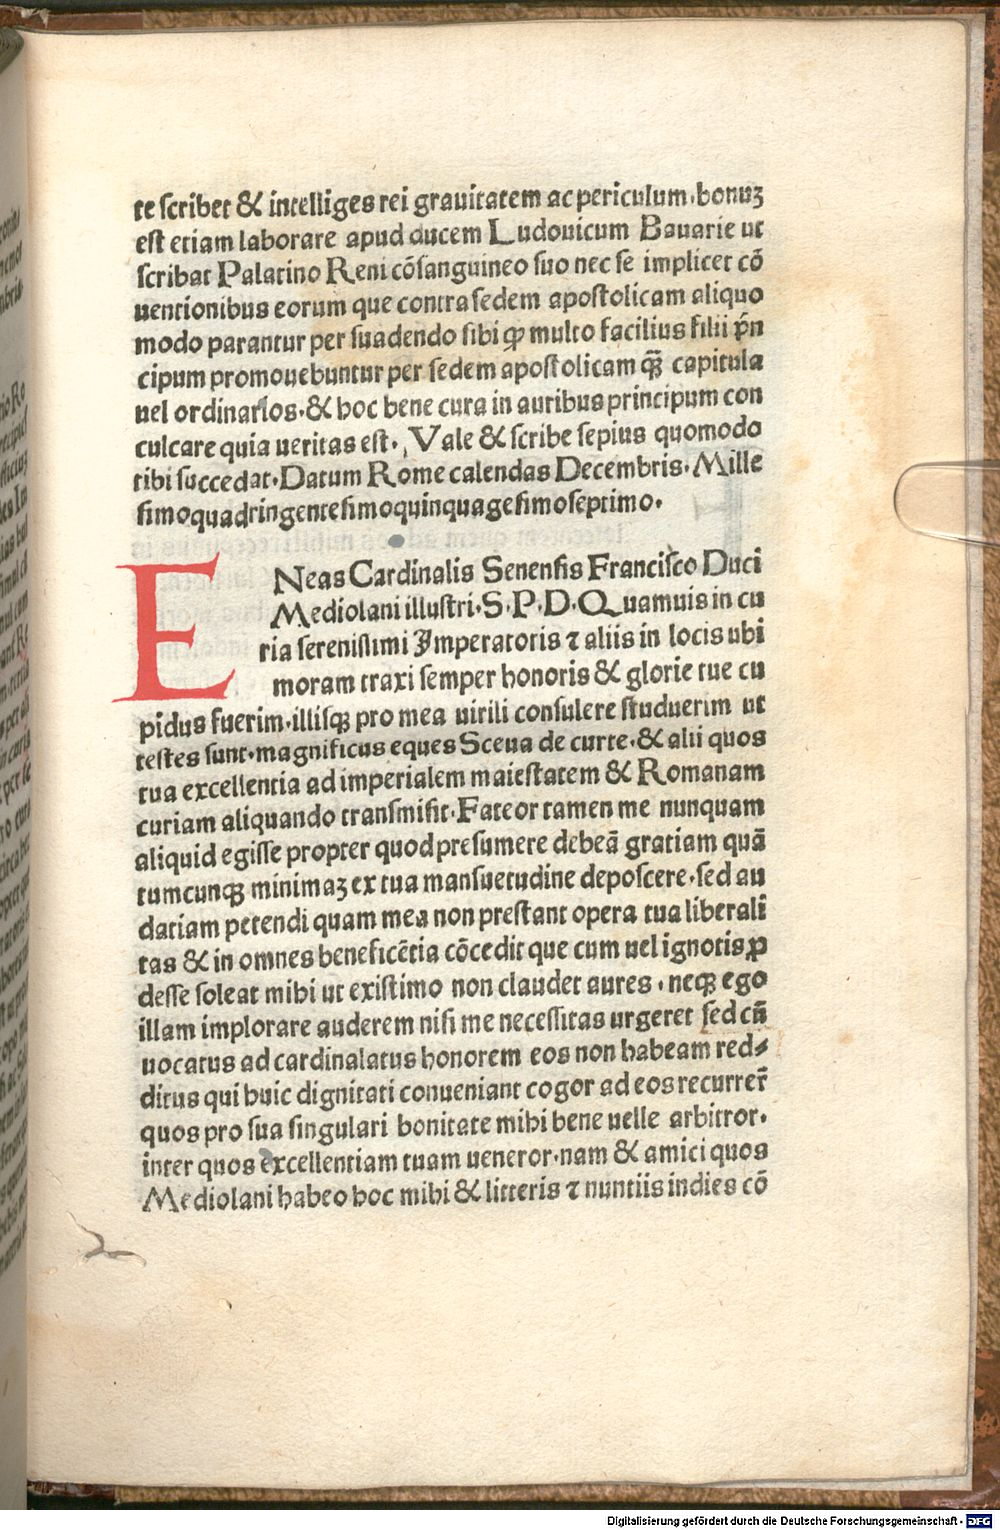 te scribet & intelliges rei grauitatem ac periculum. bonuꝫ
est etiam laborare apud ducem Ludouicum Bauarie ut
scribat Palatino Reni cōsanguineo suo nec se implicet cō
uentionibus eorum que contra sedem apostolicam aliquo
modo parantur per suadendo sibi ꝙ multo facilius filii p̄n
cipum promouebuntur per sedem apostolicam q̄ꝫ capitula
uel ordinarios. & hoc bene cura in auribus principum con
culcare quia ueritas est. Vale & scribe sepius quomodo
tibi succedat. Datum Rome calendas Decembris. Mille
simoquadringentesimoquinquagesimoseptimo.
ENeas Cardinalis Senensis Francisco Duci
Mediolani illustri. S. P. D. Quamuis in cu
ria serenissimi Imperatoris ⁊ aliis in locis ubi
moram traxi semper honoris & glorie tue cu
pidus fuerim. illisqꝫ pro mea uirili consulere studuerim ut
testes sunt. magnificus eques Sceua de curte. & alii quos
tua excellentia ad imperialem maiestatem & Romanam
curiam aliquando transmisit. Fateor tamen me nunquam
aliquid egisse propter quod presumere debeā gratiam quā
tumcunqꝫ minimaꝫ ex tua mansuetudine deposcere. sed au
datiam petendi quam mea non prestant opera tua liberali
tas & in omnes beneficētia cōcedit que cum uel ignotis ꝓ
desse soleat mihi ut existimo non claudet aures. neqꝫ ego
illam implorare auderem nisi me necessitas urgeret sed cū
uocatus ad cardinalatus honorem eos non habeam red⸗
ditus qui huic dignitati conueniant cogor ad eos recurrer̄
quos pro sua singulari bonitate mihi bene uelle arbitror.
inter quos excellentiam tuam ueneror. nam & amici quos
Mediolani habeo hoc mihi & litteris ⁊ nuntiis indies cō
Digitalisierung gefördert durch die Deutsche Forschungsgemeinschaft - DFG